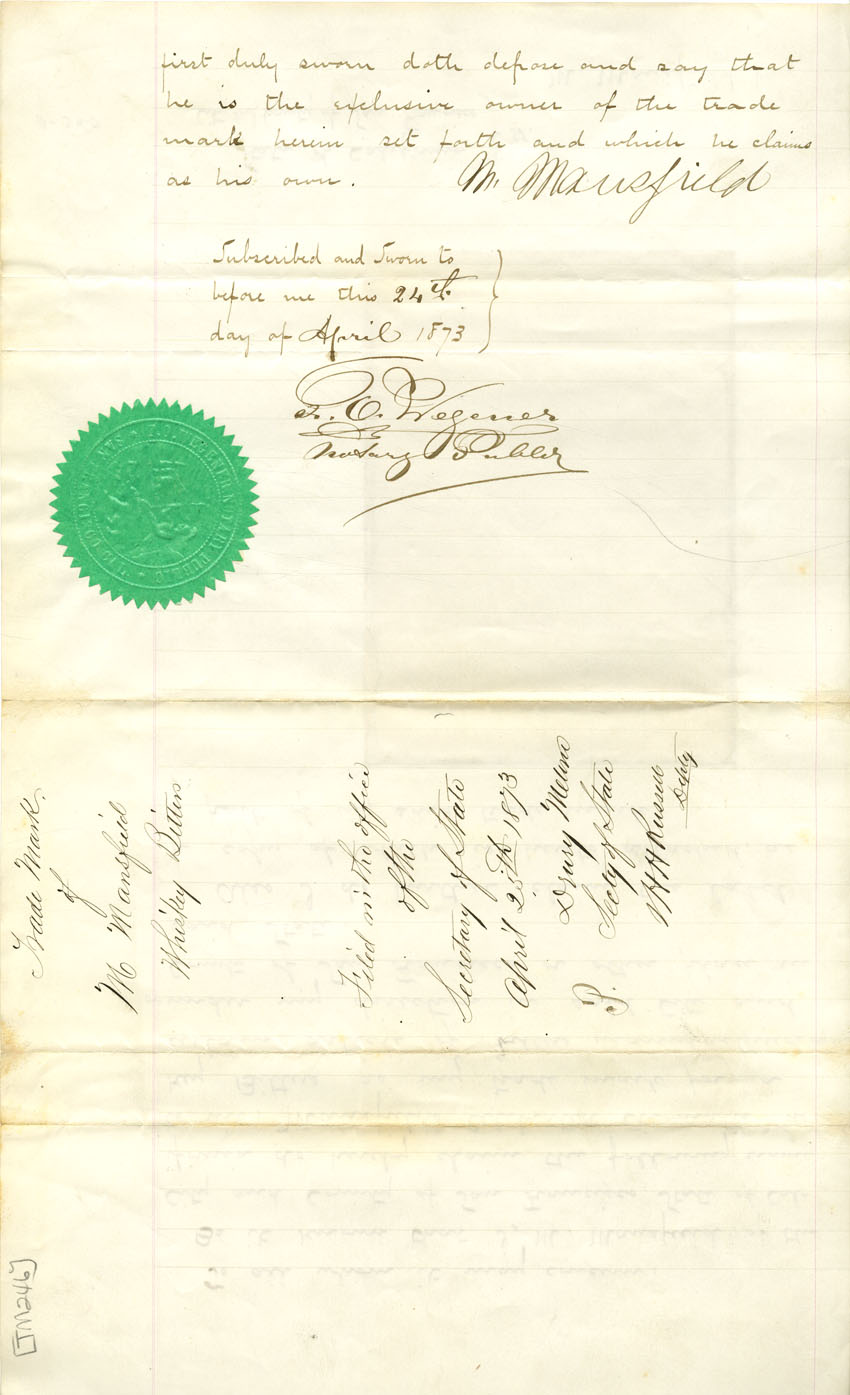 first duly sworn doth depose and say that
he is the exclusive owner of the trade
mark herein set forth and which he claims
as his own. M. Mansfield
Subscribed and Sworn to
before me this 24th
day of April 1873
F. O. Wegener
Notary Public
Trade Mark
of
M Mansfield
Whiskey Bitters
Filed in the office
of the
Secretary of State
April 25th 1873
Drury Melone
Secty of State
P.
W H Russell
Depty
[TM246]